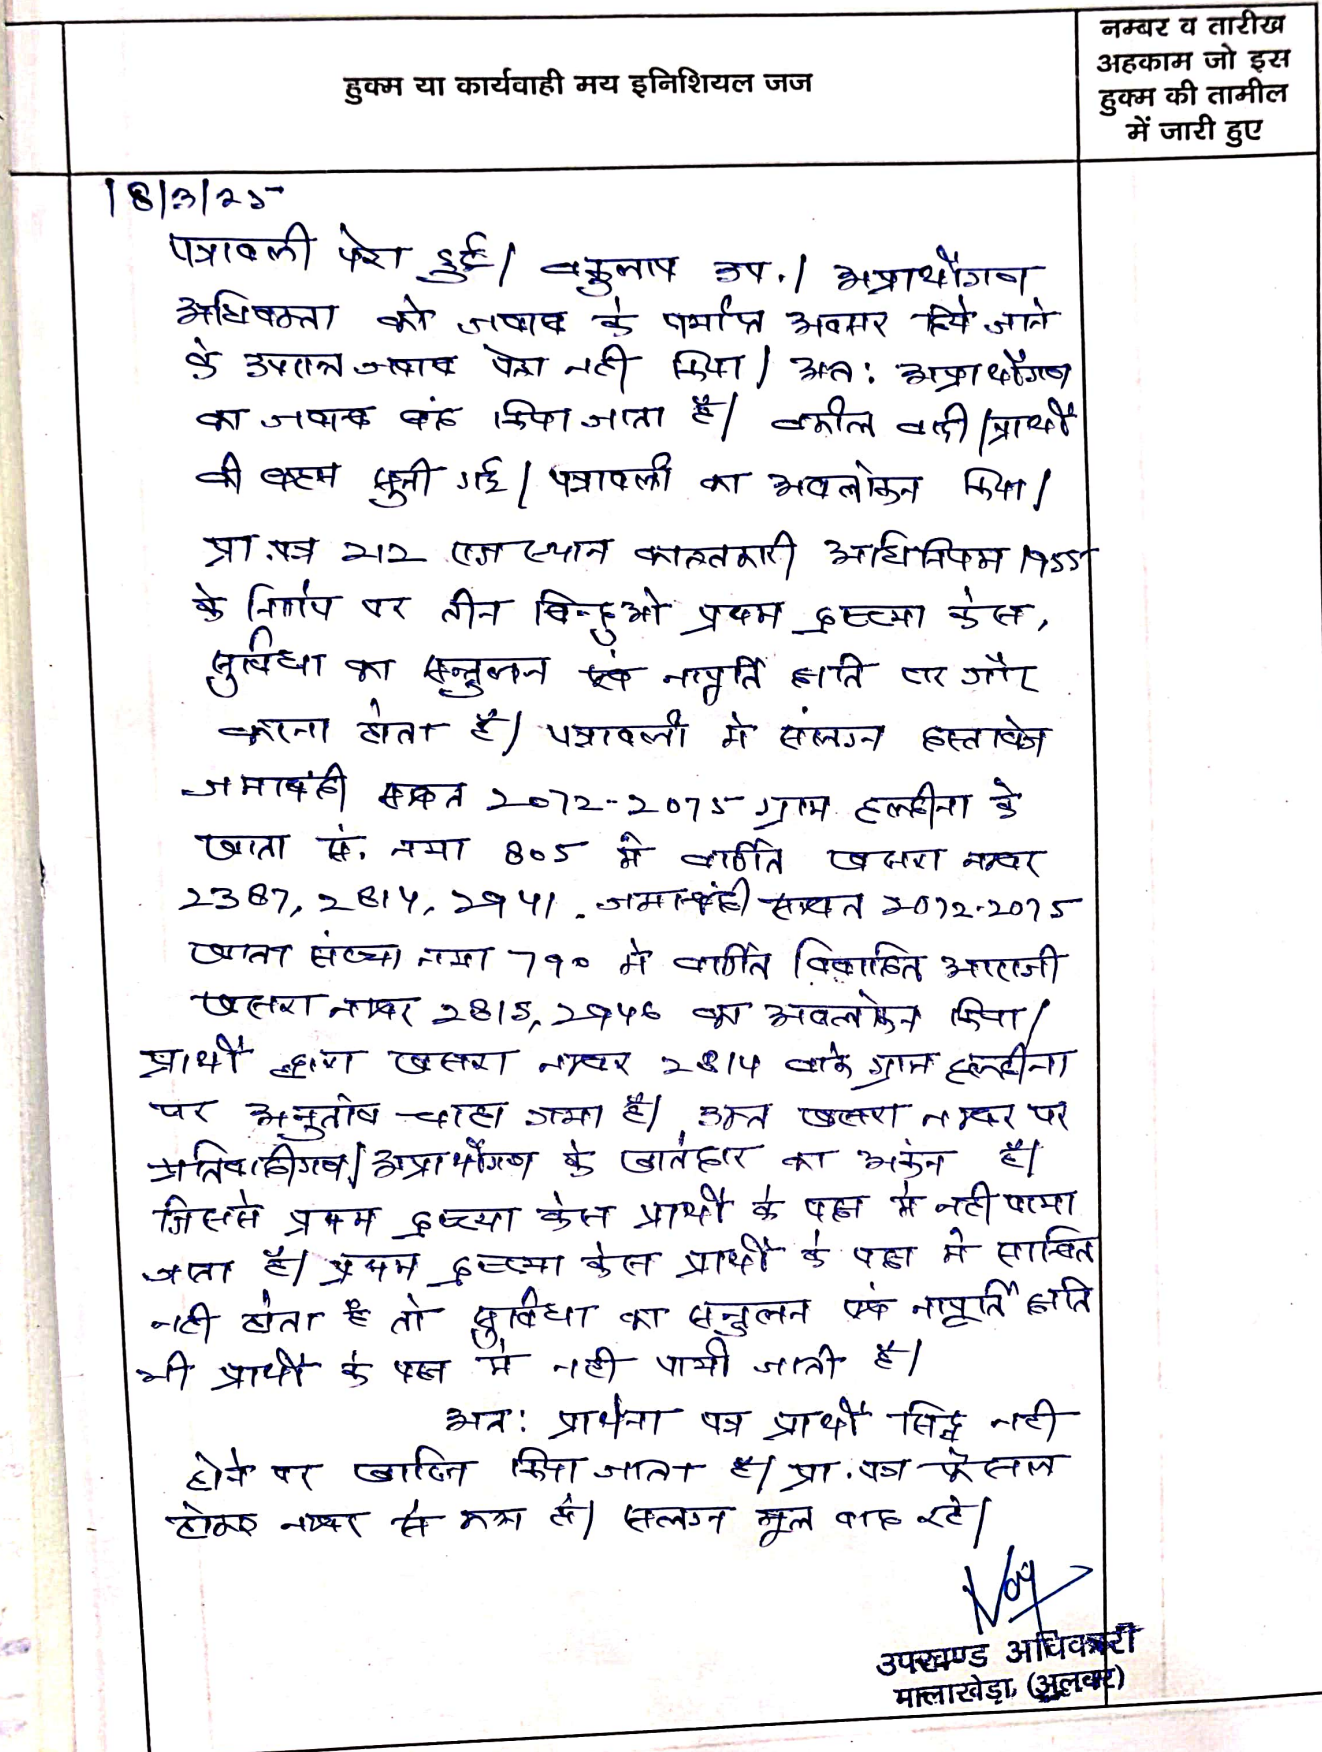 हुक्म या कार्यवाही मय इनिशियल जज
नम्बर व तारीख
अहकाम जो इस
हुक्म की तामील
में जारी हुए
18/3/25
पत्रावली पेश हुई। वकुलाय उप.। अप्रार्थीगण
अधिवक्ता को जवाब के पर्याप्त अवसर दिये जाने
के उपरान्त जवाब पेश नही किया। अत: अप्रार्थीगण
का जवाब बंद किया जाता है। वकील वादी/प्रार्थी
की बहस सुनी गई। पत्रावली का अवलोकन किया।
प्रा.पत्र 212 राजस्थान काश्तकारी अधिनियम 1955
के निर्णय पर तीन बिन्दुओ प्रथम द्रष्टया केस,
सुविधा का सन्तुलन एवं नापूर्ति हानि पर गौर
करना होता है। पत्रावली मे संलग्न दस्तावेज
जमाबंदी सम्वत 2072-2075 ग्राम हल्दीना के
खाता सं. नया 805 मे वर्णित खसरा नम्बर
2387, 2814, 2941. जमाबंदी सम्वत 2072-2075
खाता संख्या नया 790 मे वर्णित विवादित आराजी
खसरा नम्बर 2815, 2946 का अवलोकन किया।
प्रार्थी द्वारा खसरा नम्बर 2814 वाके ग्राम हल्दीना
पर अनुतोष चाहा गया है। उक्त खसरा नम्बर पर
प्रतिवादीगण/अप्रार्थीगण के खातेदार का अकंन है।
जिससे प्रथम द्रष्टया केस प्रार्थी के पक्ष मे नही पाया
जाता है। प्रथम द्रष्टया केस प्रार्थी के पक्ष मे साबित
नही होता है तो सुविधा का सन्तुलन एवं नापूर्ति हानि
भी प्रार्थी के पक्ष मे नही पायी जाती है।
अत: प्रार्थना पत्र प्रार्थी सिद्ध नही
होने पर खारिज किया जाता है। प्रा.पत्र फैसल
होकर नम्बर से कम हो। सलग्न मूल वाद रहे।
उपखण्ड अधिकारी
मालाखेड़ा, (अलवर)